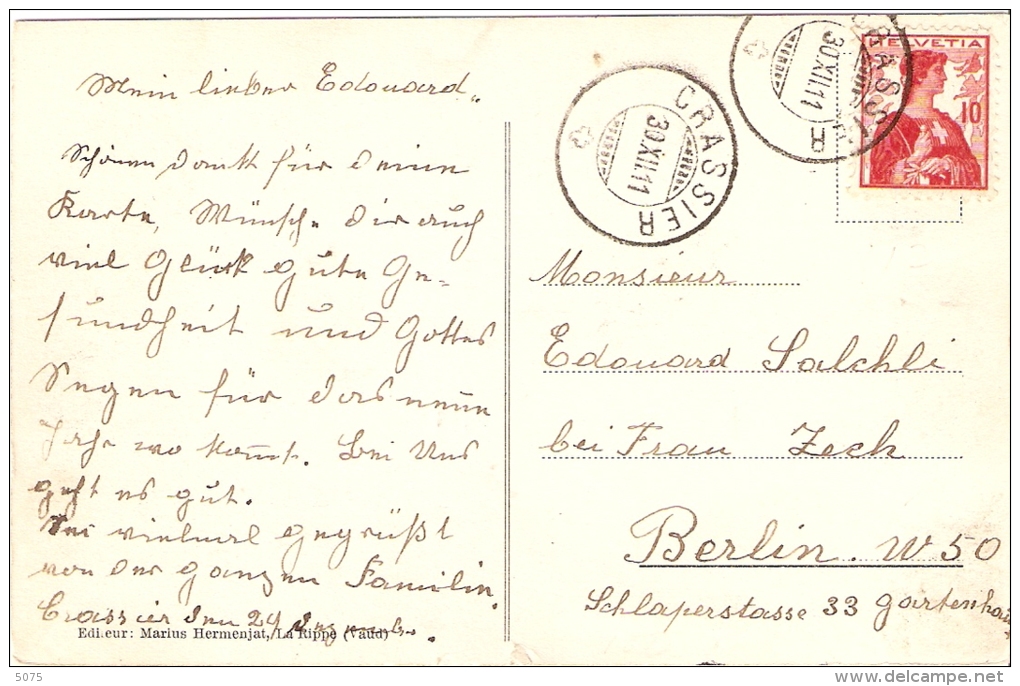 Mein lieber Edouard„
Schönen dank für deine
Karte, Wünsche dir auch
viel Glück gute Ge-
sundheit und Gottes
Segen für das neue
Jahr wo kommt. Bei Uns
geht es gut.
Sei vielmal gegrüßt
von der ganzen Familie.
Crassier den 24 dezember.
Edi.eur: Marius Hermenjat, La Rippe (Vaud)
CRASSIER
30.XII.11
CRASSIER
30.XII.11
HELVETIA
10
Monsieur
Edouard Salchli
bei Frau Zech
Berlin. W 50
Schlaperstasse 33 Gartenhau
5075
delcampe.net